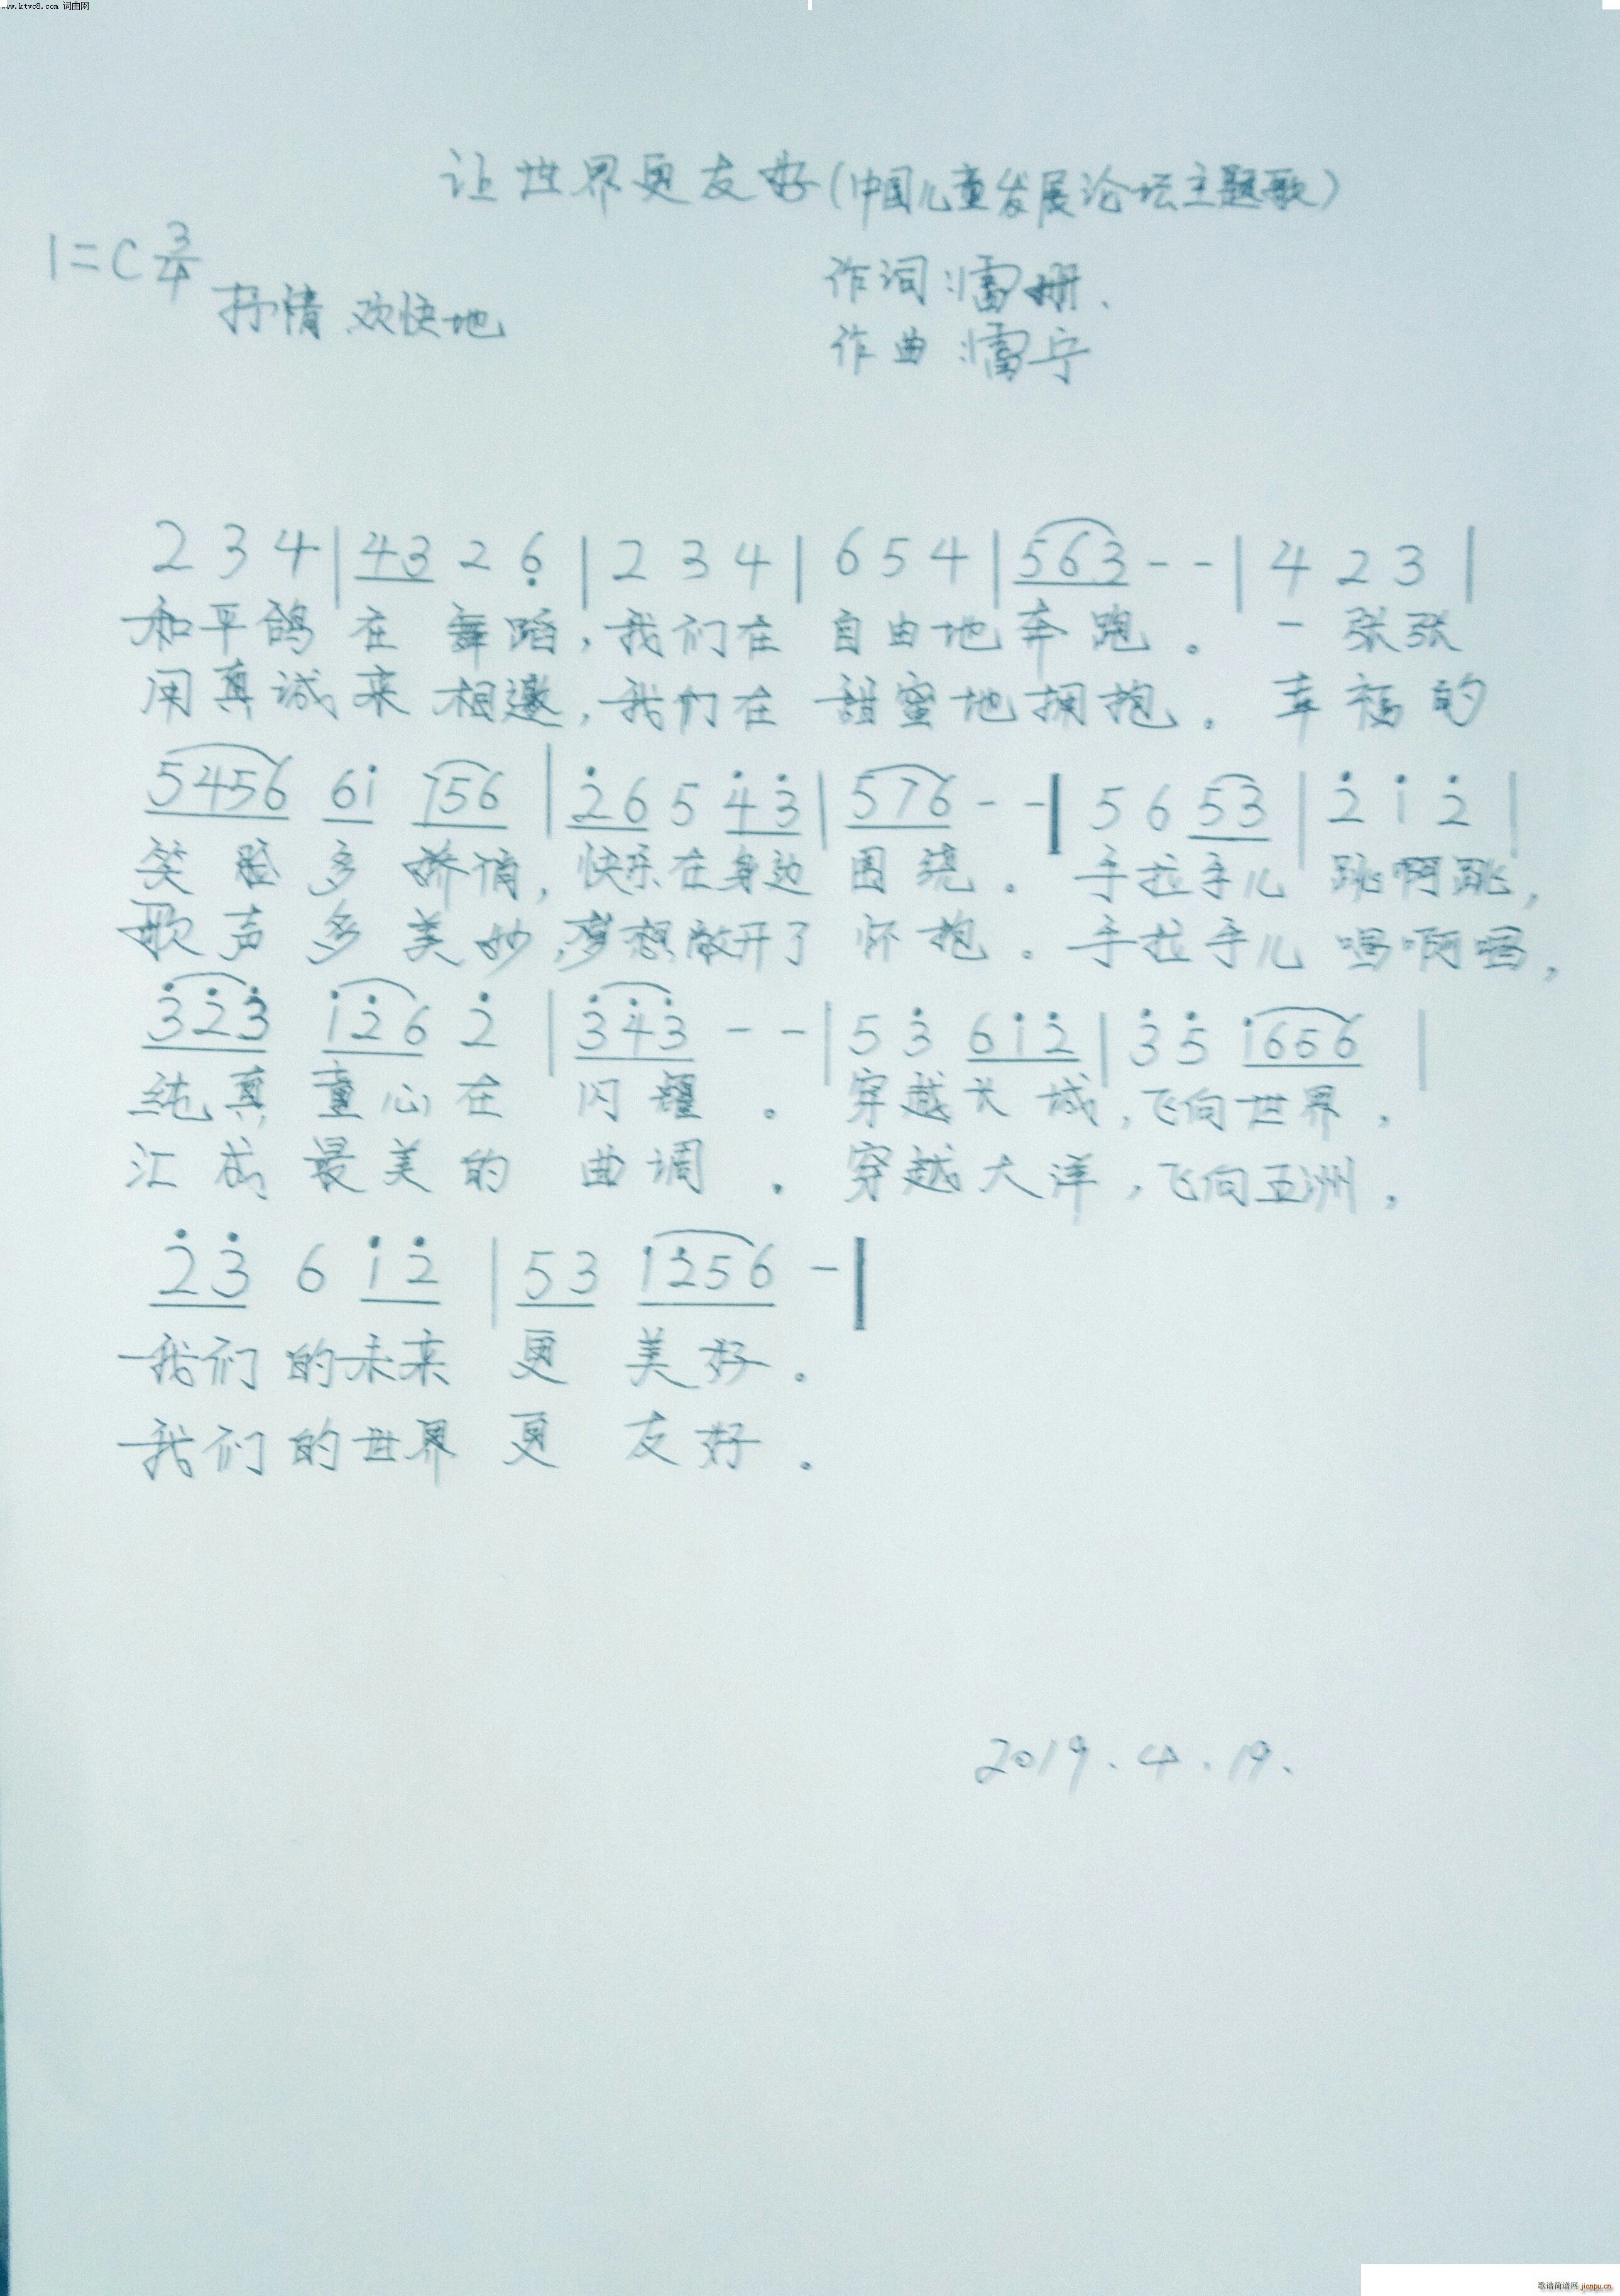 www.ktvc8.com 词曲网
让世界更友好(中国儿童发展论坛主题歌)
1=C 3/4
抒情、欢快地
作词:雷姗、
作曲:雷宁
2 3 4 | 43 2 6̣ | 2 3 4 | 6 5 4 | 563 - - | 4 2 3 |
和平鸽在舞蹈,我们在自由地奔跑。一张张
用真诚来相邀,我们在甜蜜地拥抱。幸福的
5456 6i̇ 756 | 2̇6 5 4̇3̇ | 576 - - | 5 6 53 | 2̇ i̇ 2̇ |
笑脸多娇俏,快乐在身边围绕。手拉手儿跳啊跳,
歌声多美妙,梦想敞开了怀抱。手拉手儿唱啊唱,
3̇2̇3̇ i̇2̇6 2̇ | 3̇4̇3̇ - - | 5 3̇ 6i̇2̇ | 3̇ 5̇ i̇656 |
纯真童心在闪耀。穿越长城,飞向世界,
汇成最美的曲调。穿越大洋,飞向五洲,
2̇3̇ 6 i̇2̇ | 53 i̇2̇56 - |
我们的未来更美好。
我们的世界更友好。
2019.4.19.
歌谱简谱网 jianpu.cn